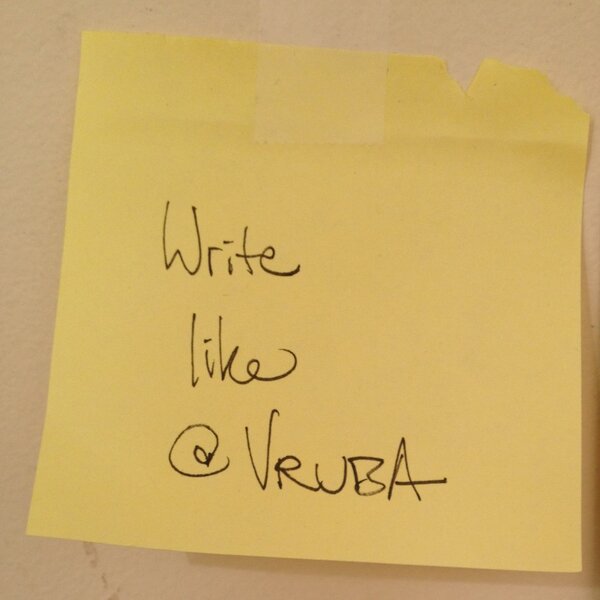 Write
like
@VRUBA